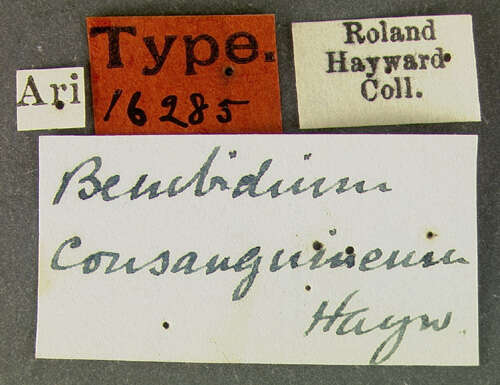 Ari
Type.
16285
Roland
Hayward
Coll.
Bembidium
Consanguineum
Hayw